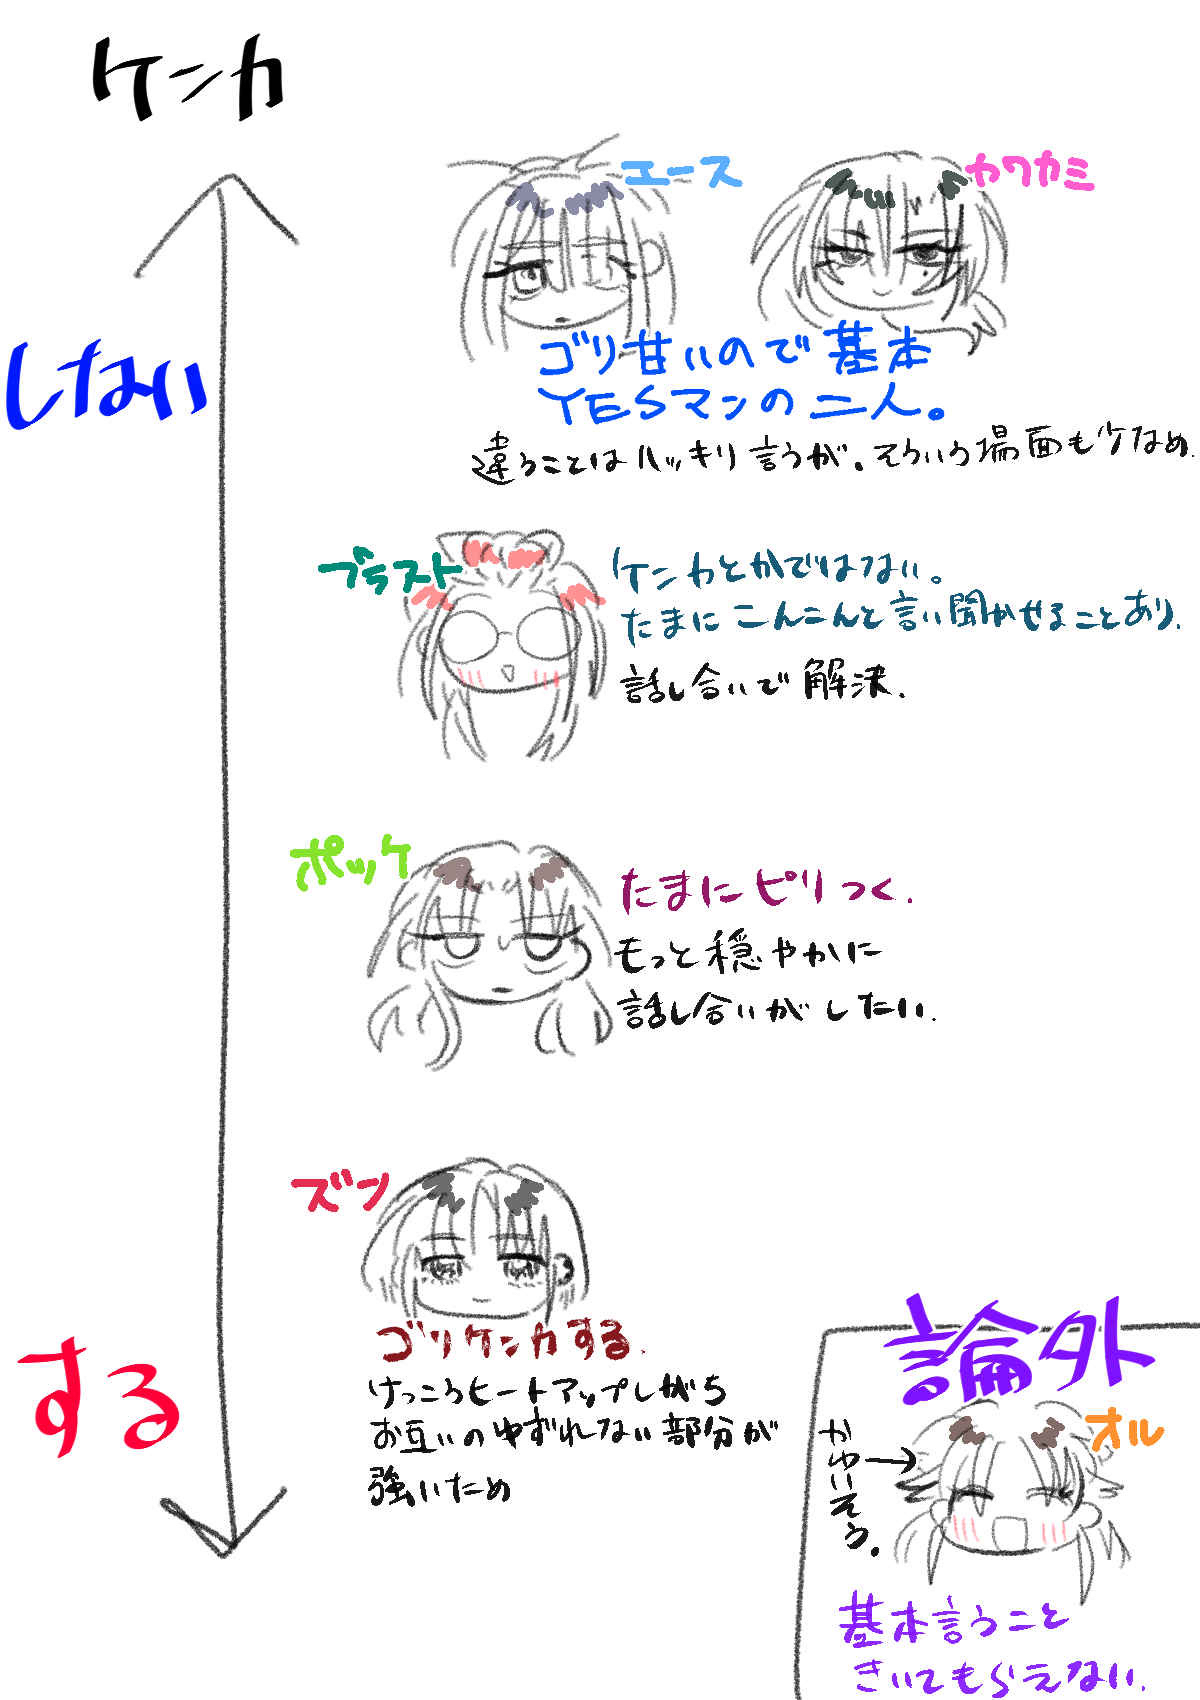 ケンカ
エース
カワカミ
しない
ゴリ甘いので基本
YESマンの二人。
違うことはハッキリ言うが。そういう場面も少なめ.
ブラスト
ケンカとかではない。
たまにこんこんと言い聞かせることあり.
話し合いで解決.
ポッケ
たまにピリつく.
もっと穏やかに
話し合いがしたい.
ズン
する
ゴリケンカする.
けっこうヒートアップしがち
お互いのゆずれない部分が
強いため
論外
オル
かわいそう。
基本言うこと
きいてもらえない.